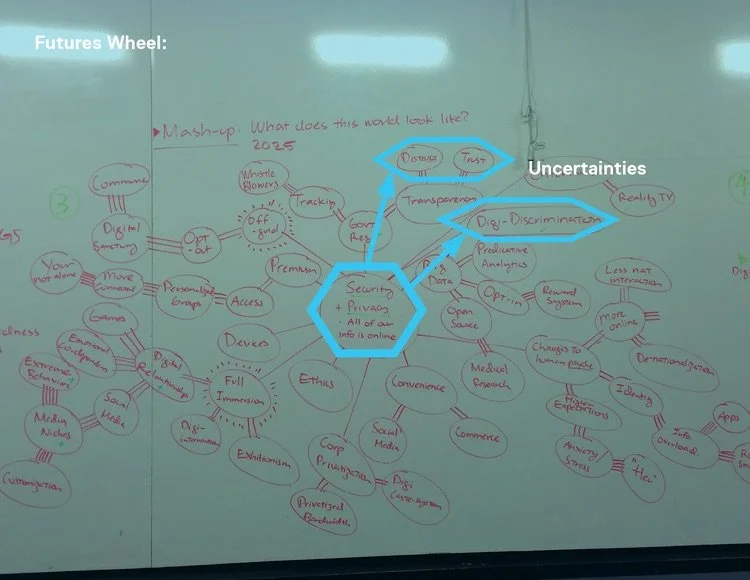 Futures Wheel:
▸ Mash-up. What does this world look like?
2025
Uncertainties
Distrust
Trust
Whistle
Blowers
Commune
3
Tracking
Transparency
Reality TV
Off
-grid
Govt
Reg
Digi-Discrimination
Digital
Sanctuary
Opt
-out
Predicative
Analytics
Your
not alone
More
Connected
Personalized
Groups
Premium
Access
Security
+ Privacy
· All of our
info is online
Big
Data
Opt-in
Reward
System
Less nat
interaction
Games
Open
Source
More
online
Emotional
Co-dependence
Devices
Extreme
Behaviors
Digital
Relationship
Full
Immersion
Ethics
Convenience
Medical
Research
Changes to
human psyche
De-nationalization
Social
Media
Media
Niches
Identity
Higher
Expectations
Digi-
Exhibitionism
Social
Media
Commerce
Info
overload
Apps
Customization
Corp
Privatization
Digi
Caste-system
Anxiety
Stress
Privatized
Bandwidth